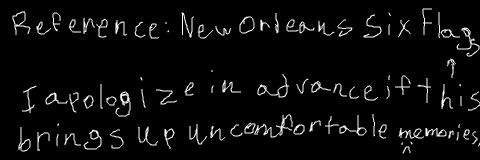 Reference: New Orleans Six Flags
I apologize in advance if this
brings up uncomfortable memories,